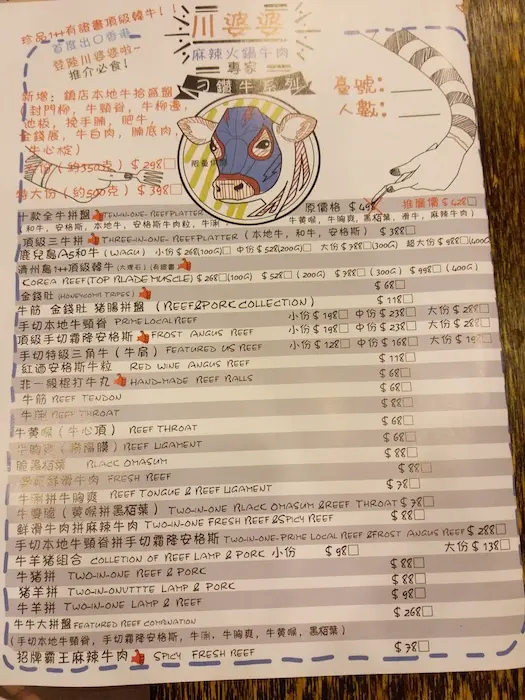 珍品1++有證書頂級韓牛!!
首度出口香港
登陸川婆婆啦~
推介必食!
川婆婆
麻辣火鍋牛肉
專家
刁鑽牛系列
臺號:
人數:
新增: 鏡店本地牛拾盛盤
封門柳, 牛頸脊, 牛柳邊,
地板, 挽手腩, 肥牛,
金錢展, 牛白肉, 腩底肉,
牛心椗)
(約350克) $298□
特大份 (約500克) $398□
十款全牛拼盤 TEN-IN-ONE-BEEFPLATTER 原價格 $498 推廣價 $428□
(和牛, 安格斯, 本地牛, 安格斯牛肉粒, 牛脷 牛黃喉, 牛胸爽, 黑栢葉, 滑牛, 麻辣牛肉)
頂級三牛拼 THREE-IN-ONE-BEEFPLATTER (本地牛, 和牛, 安格斯) $388□
鹿兒島A5和牛 (WAGU) 小份 $268(100G)□ 中份 $528(200G)□ 大份 $788□(300G) 超大份 $988□(400G)
清州島1++頂級韓牛 (大理石) (有證書)
KOREA BEEF(TOP BLADE MUSCLE) $268□(100G) $528□(200G) $788□(300G) $998□(400G)
金錢肚 (HONEYCOMB TRIPES) $68□
牛筋 金錢肚 豬腸拼盤 (BEEF&PORK COLLECTION) $118□
手切本地牛頸脊 PRIME LOCAL BEEF 小份 $198□ 中份 $238□ 大份 $288□
頂級手切霜降安格斯 FROST ANGUS BEEF 小份 $198□ 中份 $238□ 大份 $288□
手切特級三角牛 (牛肩) FEATURED US BEEF 小份 $128□ 中份 $168□ 大份
紅酒安格斯牛粒 RED WINE ANGUS BEEF $118□
非一般棍打牛丸 HAND-MADE BEEF BALLS $68□
牛筋 BEEF TENDON $68□
牛脷 BEEF THROAT $88□
牛黃喉 (牛心頂) BEEF THROAT $68□
牛胸爽 BEEF LIGAMENT $68□
脆黑栢葉 BLACK OMASUM $88□
鮮滑牛肉 FRESH BEEF $88□
牛脷拼牛胸爽 BEEF TONGUE & BEEF LIGAMENT $78□
牛雙脆 (黃喉拼黑栢葉) TWO-IN-ONE BLACK OMASUM &BEEF THROAT $78□
鮮滑牛肉拼麻辣牛肉 TWO-IN-ONE FRESH BEEF&SPICY BEEF $88□
手切本地牛頸脊拼手切霜降安格斯 TWO-IN-ONE-PRIME LOCAL BEEF &FROST ANGUS BEEF $288□
牛羊豬組合 COLLETION OF BEEF LAMB & PORK 小份 $98□ 大份 $138□
牛豬拼 TWO-IN-ONE BEEF & PORK $88□
豬羊拼 TWO-IN-ONVTTE LAMB & PORK $88□
牛羊拼 TWO-IN-ONE LAMB & BEEF $98□
牛牛大拼盤 FEATURED BEEF COMBINATION $268□
(手切本地牛頸脊, 手切霜降安格斯, 牛脷, 牛胸爽, 牛黃喉, 黑栢葉)
招牌霸王麻辣牛肉 SPICY FRESH BEEF $78□